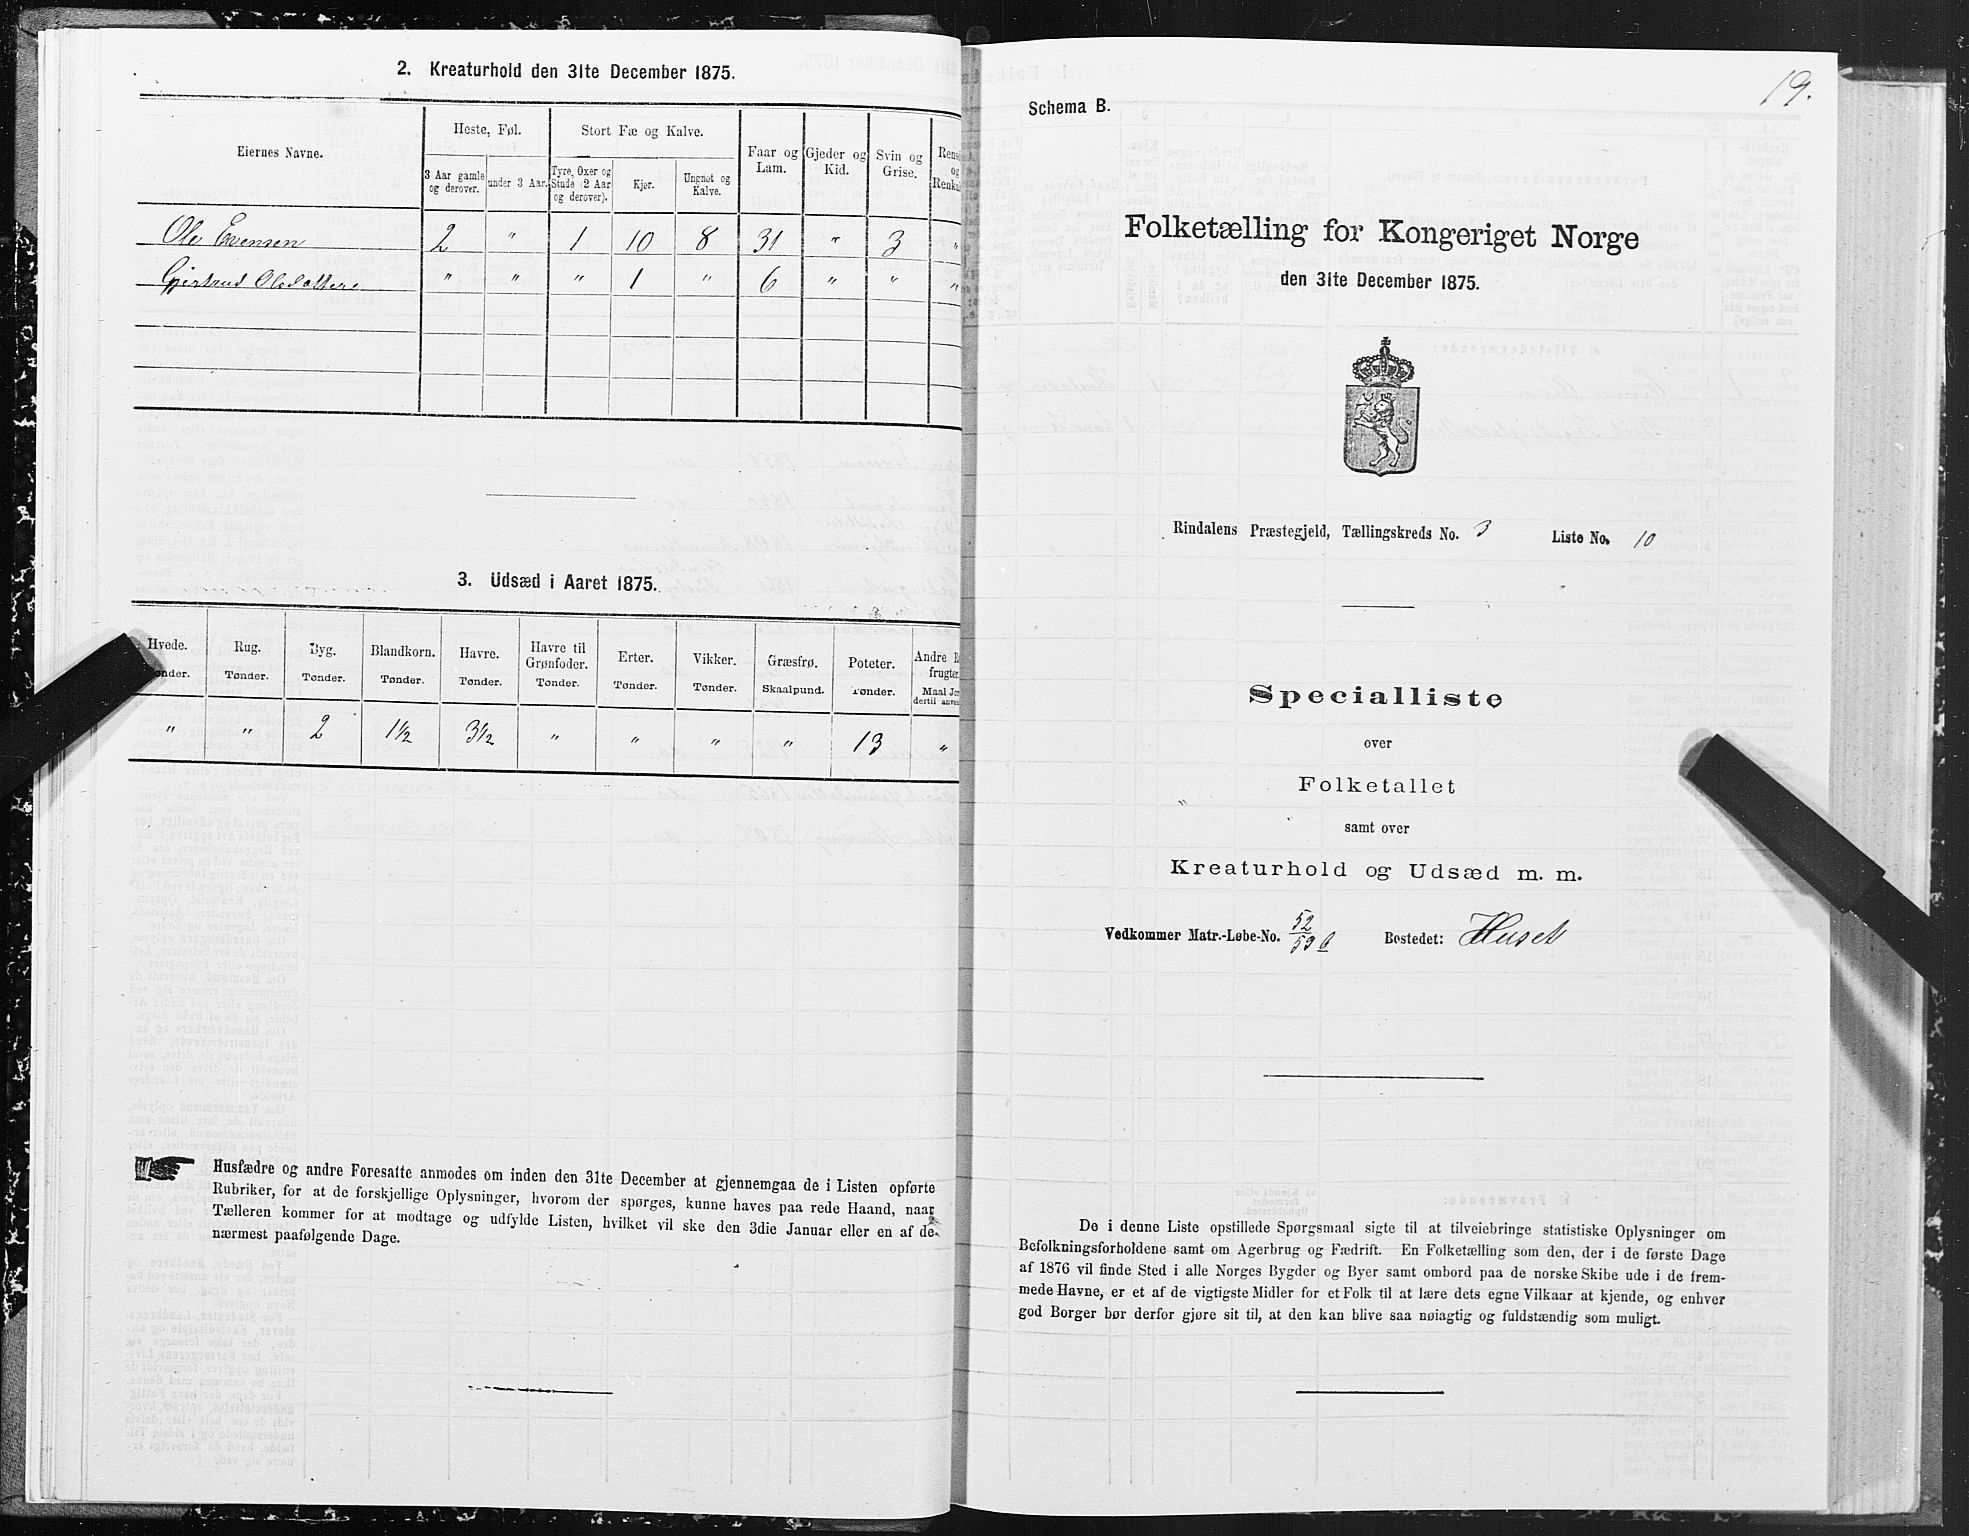 2. Kreaturhold den 31te December 1875.
Eiernes Navne.
Heste, Føl.
Stort Fæ og Kalve.
Faar og Lam.
Gjeder og Kid.
Svin og Grise.
3 Aar gamle og derover.
under 3 Aar.
Tyre, Oxer og Stude (2 Aar og derover).
Kjør.
Ungnøt og Kalve.
Ole Evensen 2 " 1 10 8 31 " 3 "
Gjertrud Olsdatter " " " 1 " 6 " " "
3. Udsæd i Aaret 1875.
Hvede. Rug. Byg. Blandkorn. Havre. Havre til Grønfoder. Erter. Vikker. Græsfrø. Poteter. Andre
Tønder. Tønder. Tønder. Tønder. Tønder. Tønder. Tønder. Skaalpund. Tønder. Maal
" " 2 1½ 3½ " " " " 13 "
Husfædre og andre Foresatte anmodes om inden den 31te December at gjennemgaa de i Listen opførte
Rubriker, for at de forskjellige Oplysninger, hvorom der spørges, kunne haves paa rede Haand, naar
Tælleren kommer for at modtage og udfylde Listen, hvilket vil ske den 3die Januar eller en af de
nærmest paafølgende Dage.
19.
Schema B.
Folketælling for Kongeriget Norge
den 31te December 1875.
Rindalens Præstegjeld, Tællingskreds No. 3 Liste No. 10
Specialliste
over
Folketallet
samt over
Kreaturhold og Udsæd m. m.
Vedkommer Matr.-Løbe-No. 52/59 b Bostedet: Huset
De i denne Liste opstillede Spørgsmaal sigte til at tilveiebringe statistiske Oplysninger om
Befolkningsforholdene samt om Agerbrug og Fædrift. En Folketælling som den, der i de første Dage
af 1876 vil finde Sted i alle Norges Bygder og Byer samt ombord paa de norske Skibe ude i de frem-
mede Havne, er et af de vigtigste Midler for et Folk til at lære dets egne Vilkaar at kjende, og enhver
god Borger bør derfor gjøre sit til, at den kan blive saa nøiagtig og fuldstændig som muligt.